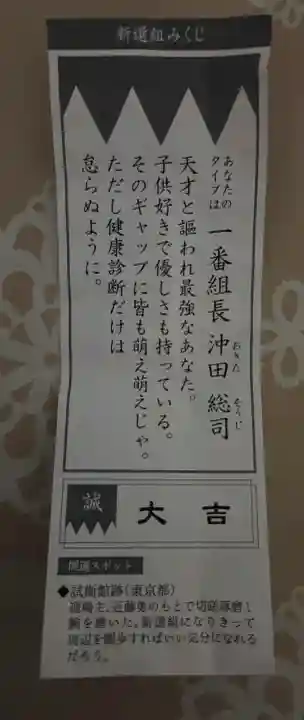 新選組みくじ
あなたの
タイプは
一番組長 沖田 総司
おきた そうじ
天才と謳われ最強なあなた。
子供好きで優しさも持っている。
そのギャップに皆も萌え萌えじゃ。
ただし健康診断だけは
怠らぬように。
誠
大吉
開運スポット
◆試衛館跡(東京都)
道場主、近藤勇のもとで切磋琢磨し
腕を磨いた。新選組になりきって
周辺を闊歩すればいい気分になれる
だろう。